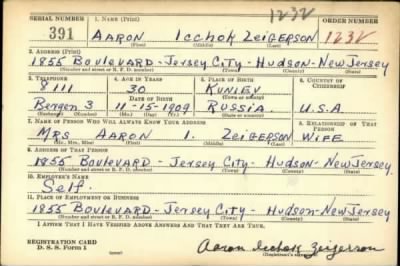 1232
SERIAL NUMBER 1. NAME (Print) ORDER NUMBER
391 AARON ICCHOK ZEIGERSON 1232
(First) (Middle) (Last)
2. ADDRESS (Print)
1855 BOULEVARD - JERSEY CITY - HUDSON - NEW JERSEY
(Number and street or R. F. D. number) (Town) (County) (State)
3. TELEPHONE 4. AGE IN YEARS 5. PLACE OF BIRTH 6. COUNTRY OF CITIZENSHIP
8111 30
DATE OF BIRTH
Bergen 3 11-15-1909 RUSSIA. U.S.A
7. NAME OF PERSON WHO WILL ALWAYS KNOW YOUR ADDRESS 8. RELATIONSHIP OF THAT PERSON
MRS AARON I. ZEIGERSON WIFE
(Mr., Mrs., Miss) (First) (Middle) (Last)
9. ADDRESS OF THAT PERSON
1855 BOULEVARD - JERSEY CITY - HUDSON - NEW JERSEY.
(Number and street or R. F. D. number) (Town) (County) (State)
10. EMPLOYER'S NAME
SELF.
11. PLACE OF EMPLOYMENT OR BUSINESS
1855 BOULEVARD - JERSEY CITY - HUDSON - NEW JERSEY
(Number and street or R. F. D. number) (Town) (County) (State)
I AFFIRM THAT I HAVE VERIFIED ABOVE ANSWERS AND THAT THEY ARE TRUE.
REGISTRATION CARD
D. S. S. Form 1
Aaron Icchok Zeigerson
(Registrant's signature)